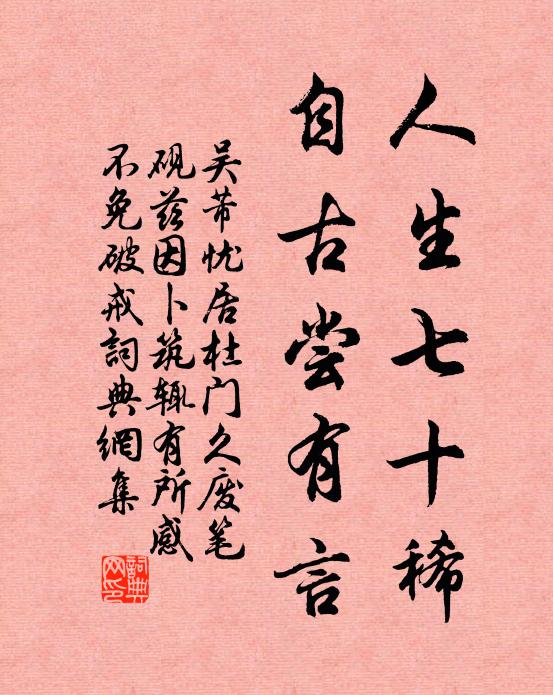 人生七十稀
自古尝有言
吴芾忧居杜门久废笔
砚兹因卜筑辄有所感
不免破戒詞典網集
詞典网印